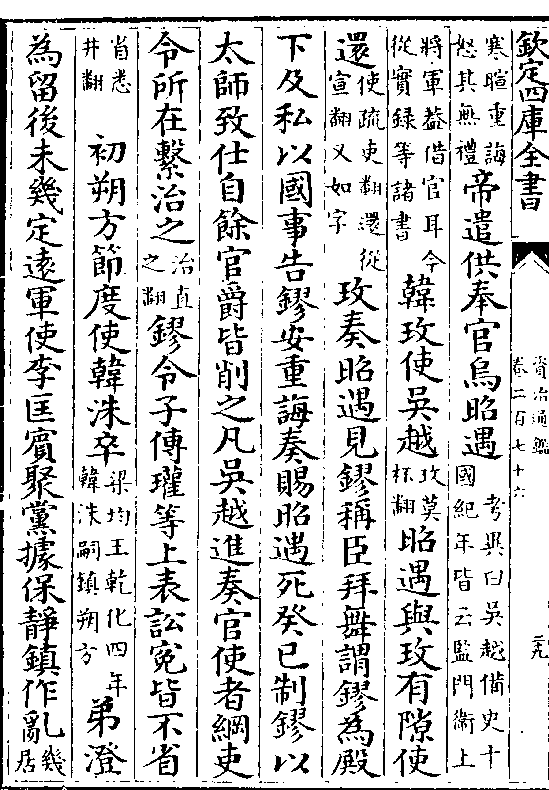 欽定四庫全書
資治通鑑
卷二百七十六
二九
寒暄重誨
怒其無禮
帝遣供奉官烏昭遇
考異曰吳越備史十
國紀年皆云監門衛上
將軍蓋借官耳今
從實録等諸書
韓玫使吳越
玫莫
杯翻
昭遇與玫有隙使
還
使疏吏翻還從
宣翻又如字
玫奏昭遇見鏐稱臣拜舞謂鏐為殿
下及私以國事告鏐安重誨奏賜昭遇死癸已制鏐以
太師致仕自餘官爵皆削之凡吳越進奏官使者綱吏
令所在繫治之
治直
之翻
鏐令子傳瓘等上表訟寃皆不省
省悉
井翻
初朔方節度使韓洙卒
梁均王乾化四年
韓洙嗣鎮朔方
弟澄
為留後未幾定遠軍使李匡賓聚黨據保靜鎮作亂
幾
居